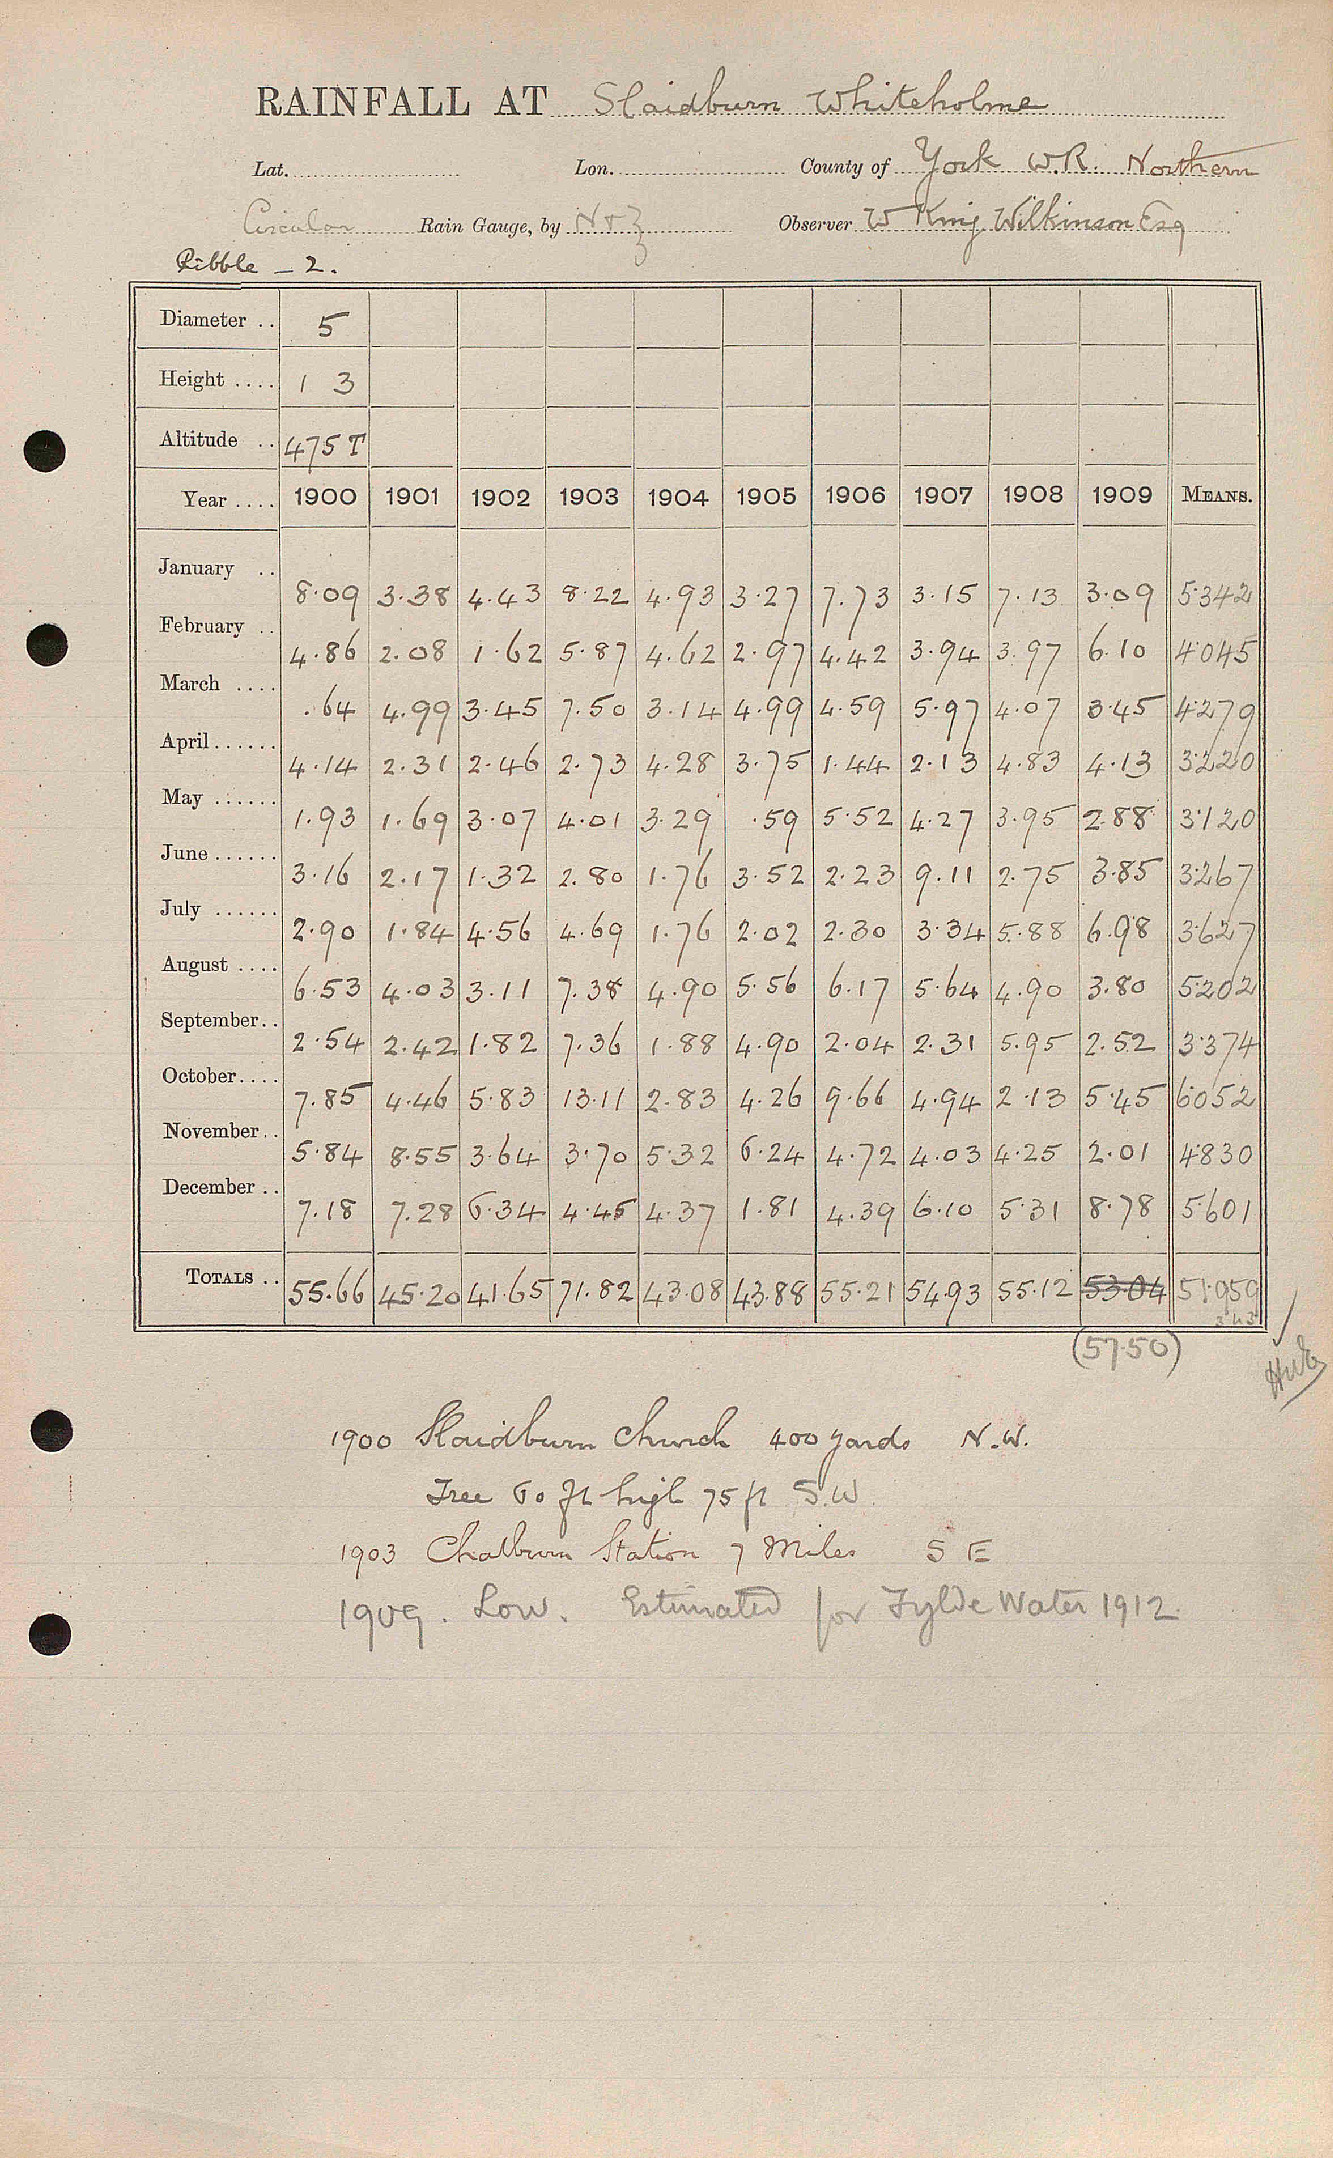 RAINFALL AT Slaidburn Whiteholme
Lat. Lon. County of York W.R. Northern
Circular Rain Gauge, by N & Z Observer W King Wilkinson Esq
Ribble - 2.
Diameter .. 5
Height .... 1 3
Altitude .. 475 T
Year .... 1900 1901 1902 1903 1904 1905 1906 1907 1908 1909 MEANS.
January .. 8.09 3.38 4.43 8.22 4.93 3.27 7.73 3.15 7.13 3.09 5.342
February .. 4.86 2.08 1.62 5.87 4.62 2.97 4.42 3.94 3.97 6.10 4.045
March .... .64 4.99 3.45 7.50 3.14 4.99 4.59 5.97 4.07 3.45 4.279
April...... 4.14 2.31 2.46 2.73 4.28 3.75 1.44 2.13 4.83 4.13 3.220
May ...... 1.93 1.69 3.07 4.01 3.29 .59 5.52 4.27 3.95 2.88 3.120
June...... 3.16 2.17 1.32 2.80 1.76 3.52 2.23 9.11 2.75 3.85 3.267
July ...... 2.90 1.84 4.56 4.69 1.76 2.02 2.30 3.34 5.88 6.98 3.627
August .... 6.53 4.03 3.11 7.38 4.90 5.56 6.17 5.64 4.90 3.80 5.202
September.. 2.54 2.42 1.82 7.36 1.88 4.90 2.04 2.31 5.95 2.52 3.374
October.... 7.85 4.46 5.83 13.11 2.83 4.26 9.66 4.94 2.13 5.45 6.052
November.. 5.84 8.55 3.64 3.70 5.32 6.24 4.72 4.03 4.25 2.01 4.830
December .. 7.18 7.28 6.34 4.45 4.37 1.81 4.39 6.10 5.31 8.78 5.601
TOTALS .. 55.66 45.20 41.65 71.82 43.08 43.88 55.21 54.93 55.12 53.04 51.959
(57.50)
1900 Slaidburn Church 400 yards N.W.
Tree 60 ft high 75 ft S.W.
1903 Chatburn Station 7 Miles S E
1909. Low. Estimated for Fylde Water 1912.